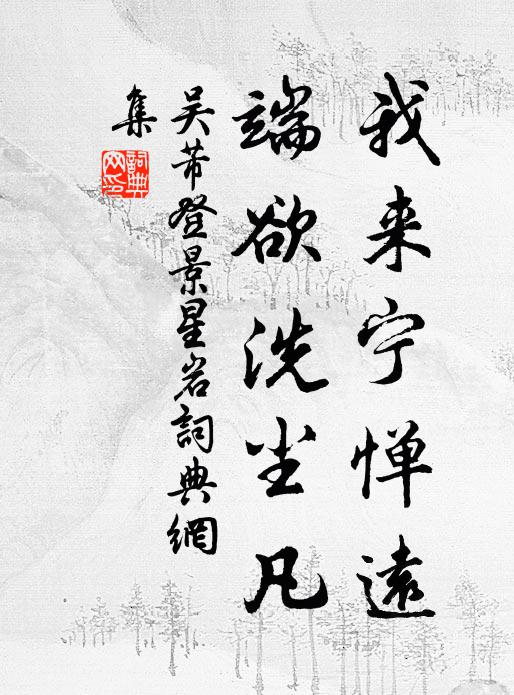 我来宁惮遠
端欲洗尘凡
吴芾登景星岩詞典網
集
詞典
网印